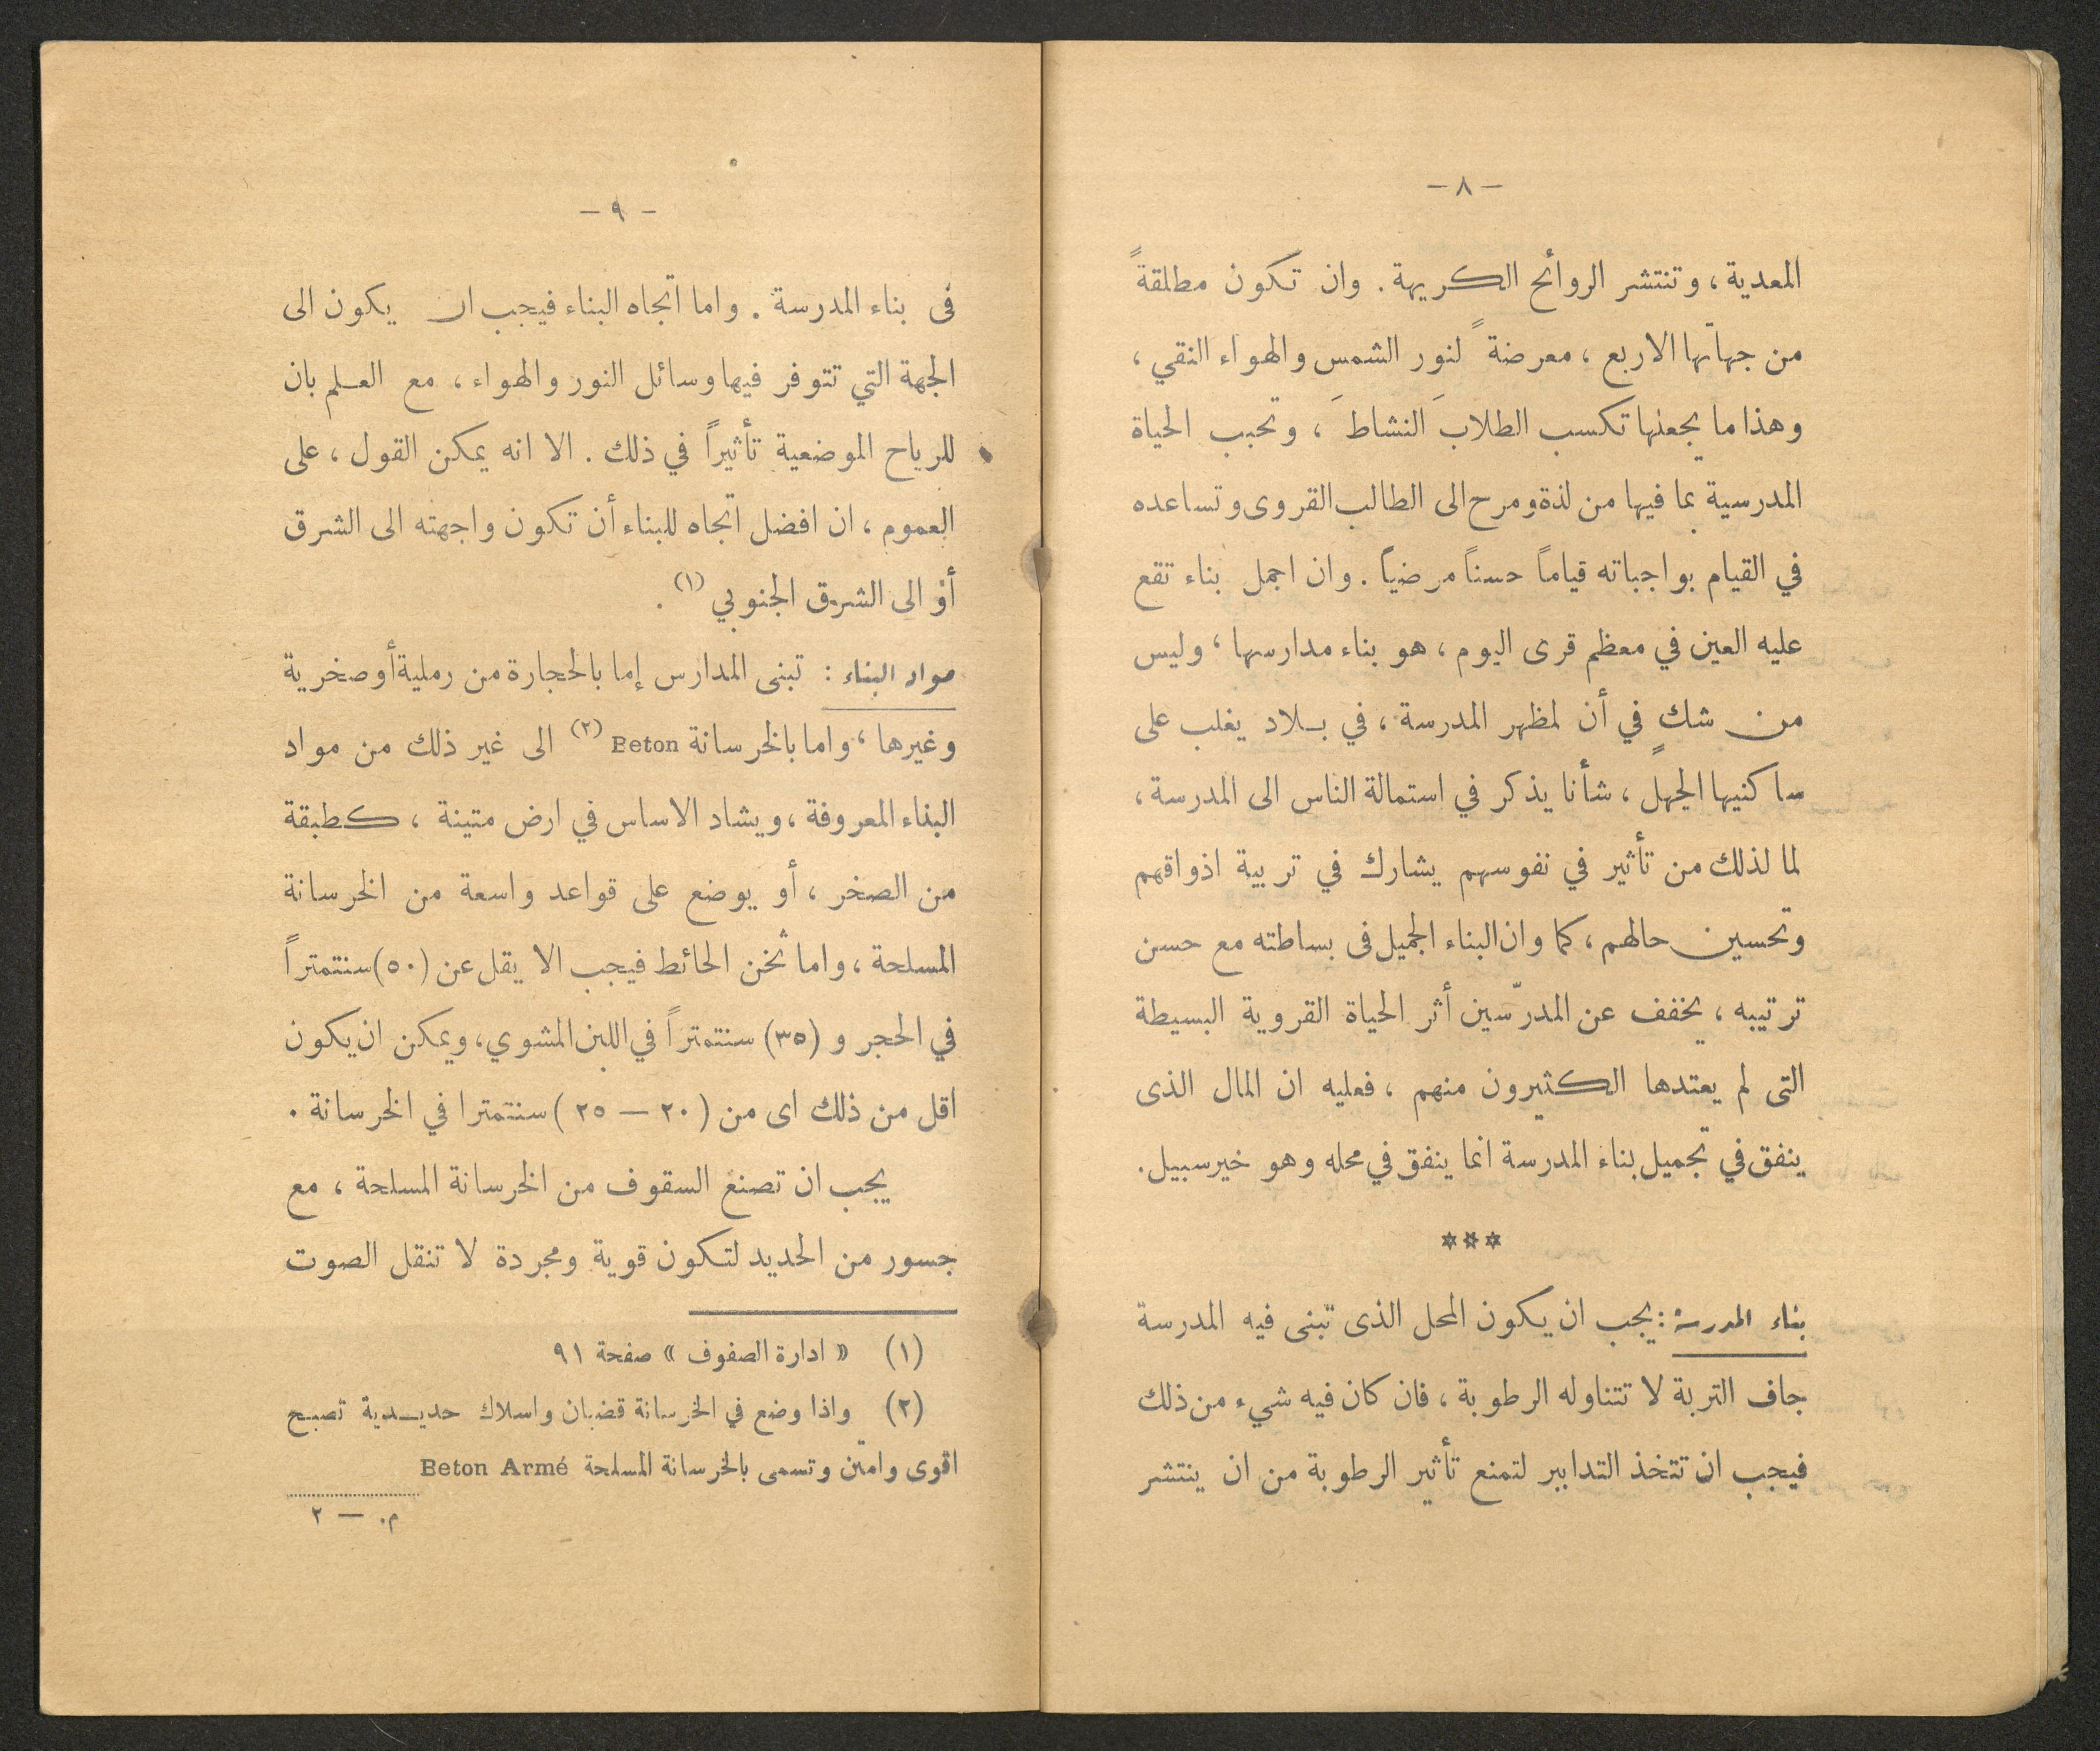 — ٨ —
المعدية، وتنتشر الروائح الكريهة. وان تكون مطلقةً
من جهاتها الاربع، معرضةً لنور الشمس والهواء النقي،
وهذا ما يجعلها تكسب الطلابَ النشاطَ، وتحبب الحياة
المدرسية بما فيها من لذة ومرح الى الطالب القروى وتساعده
في القيام بواجباته قياماً حسناً مرضياً. وان اجمل بناء تقع
عليه العين في معظم قرى اليوم، هو بناء مدارسها، وليس
من شكٍ في أن لمظهر المدرسة، في بلاد يغلب على
ساكنيها الجهل، شأنا يذكر في استمالة الناس الى المدرسة،
لما لذلك من تأثير في نفوسهم يشارك في تربية اذواقهم
وتحسين حالهم، كما وان البناء الجميل فى بساطته مع حسن
ترتيبه، يخفف عن المدرّسين أثر الحياة القروية البسيطة
التى لم يعتدها الكثيرون منهم، فعليه ان المال الذى
ينفق في تجميل بناء المدرسة انما ينفق في محله وهو خير سبيل.
***
بناء المدرسة: يجب ان يكون المحل الذى تبنى فيه المدرسة
جاف التربة لا تتناوله الرطوبة، فان كان فيه شيء من ذلك
فيجب ان تتخذ التدابير لتمنع تأثير الرطوبة من ان ينتشر
— ٩ —
فى بناء المدرسة. واما اتجاه البناء فيجب ان يكون الى
الجهة التي تتوفر فيها وسائل النور والهواء، مع العلم بان
للرياح الموضعية تأثيراً في ذلك. الا انه يمكن القول، على
العموم، ان افضل اتجاه للبناء أن تكون واجهته الى الشرق
أو الى الشرق الجنوبي (١).
مواد البناء: تبنى المدارس إما بالحجارة من رملية أو صخرية
وغيرها، واما بالخرسانة Beton (٢) الى غير ذلك من مواد
البناء المعروفة، ويشاد الاساس في ارض متينة، كطبقة
من الصخر، أو يوضع على قواعد واسعة من الخرسانة
المسلحة، واما ثخن الحائط فيجب الا يقل عن (٥٠) سنتمتراً
في الحجر و (٣٥) سنتمتراً في اللبن المشوي، ويمكن ان يكون
اقل من ذلك اى من (٢٠ — ٢٥) سنتمترا في الخرسانة.
يجب ان تصنع السقوف من الخرسانة المسلحة، مع
جسور من الحديد لتكون قوية ومجردة لا تنقل الصوت
(١) « ادارة الصفوف » صفحة ٩١
(٢) واذا وضع في الخرسانة قضبان واسلاك حديدية تصبح
اقوى وامتن وتسمى بالخرسانة المسلحة Beton Armé
م. — ٢